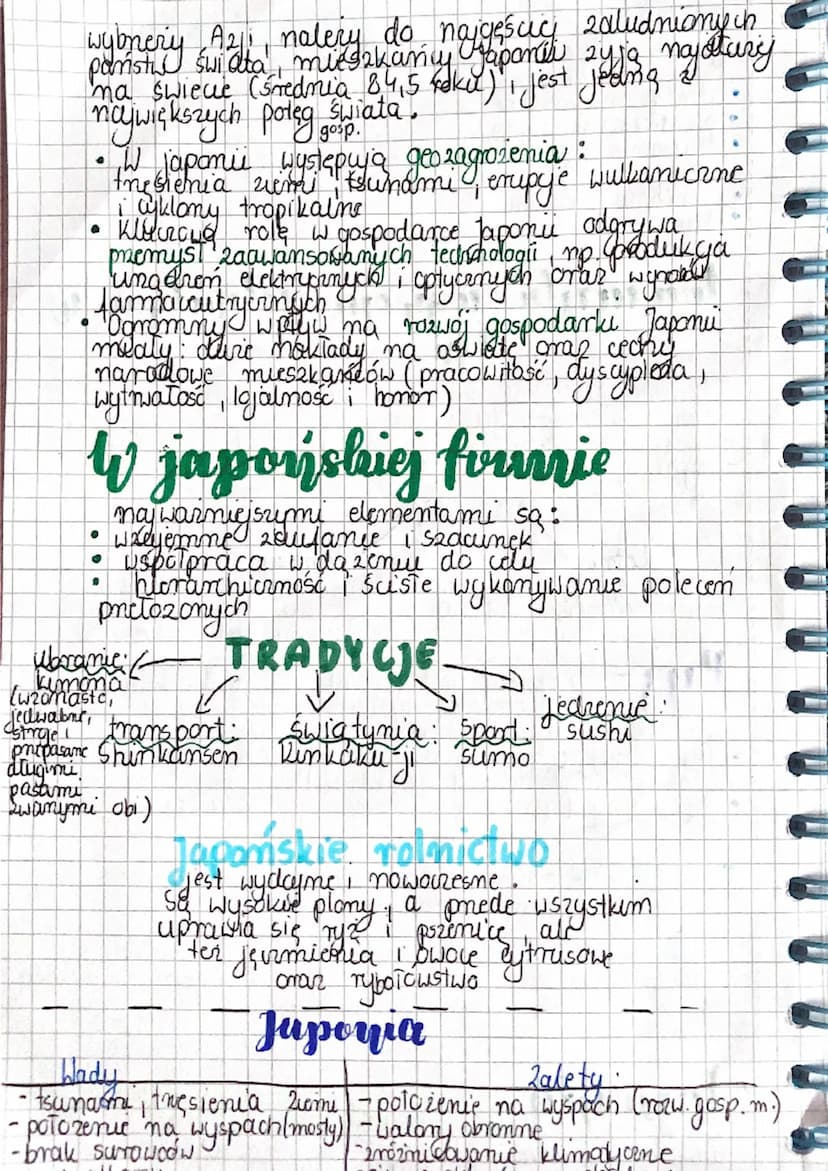 wybrzeży Azji, należy do najgęściej zaludnionych
państw świata, mieszkańcy Japonii żyją najdłużej
na świecie (średnia 84,5 roku), jest jedną z
największych potęg świata.
gosp.
• W japonii występują geozagrożenia:
trzęsienia ziemi, tsunami, erupcje wulkaniczne
i cyklony tropikalne
• Kluczową rolę w gospodarce Japonii odgrywa
przemysł zaawansowanych technologii, np. produkcja
urządzeń elektrycznych i optycznych oraz wyrobów
farmaceutycznych
• Ogromny wpływ na rozwój gospodarki Japonii
miały: duże nakłady na oświatę oraz cechy
narodowe mieszkańców (pracowitość, dyscyplina,
wytrwałość, lojalność i honor)
W japońskiej firmie
najważniejszymi elementami są:
• wzajemne zaufanie i szacunek
• współpraca w dążeniu do celu
• hierarchiczność i ściśle wykonywanie poleceń
przełożonych
TRADYCJE
ubranie:
kimona
(wzorzaste,
jedwabne,
stroje
przepasane
długimi
pasami
zwanymi obi)
transport:
Shinkansen
świątynia:
Kinkaku-ji
sport:
sumo
jedzenie:
sushi
Japońskie rolnictwo
jest wydajne i nowoczesne.
Są wysokie plony, a przede wszystkim
uprawia się ryż i pszenicę, ale
też jęczmienia i owoce cytrusowe
oraz rybołówstwo
Japonia
Wady
- tsunami, trzęsienia ziemi
- położenie na wyspach (mosty)
- brak surowców
Zalety:
- położenie na wyspach (rozw. gosp. m.)
- walory obronne
- zróżnicowanie klimatyczne